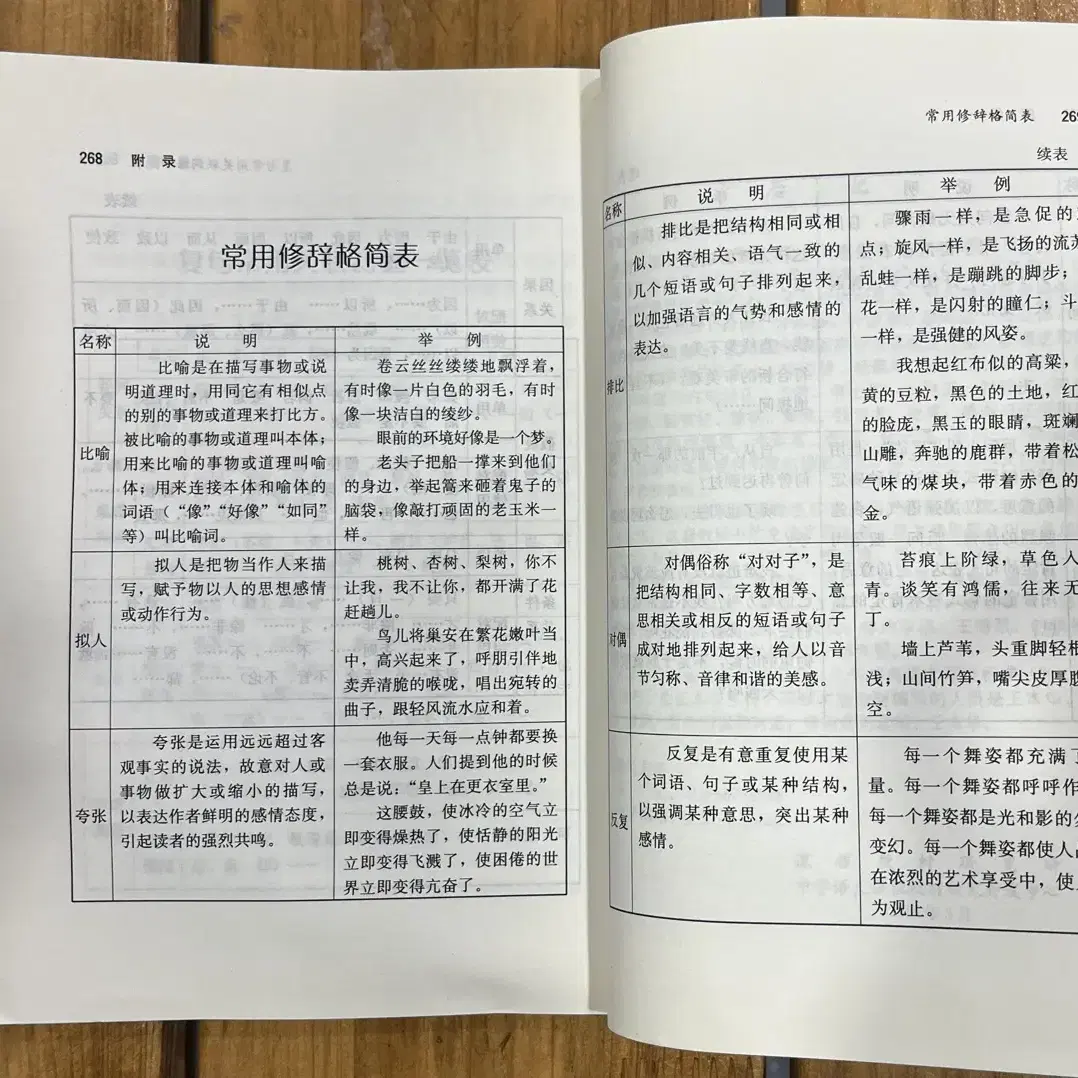 268 附 录
常用修辞格简表
名称 说 明 举 例
比喻
比喻是在描写事物或说
明道理时，用同它有相似点
的别的事物或道理来打比方。
被比喻的事物或道理叫本体；
用来比喻的事物或道理叫喻
体；用来连接本体和喻体的
词语（“像”“好像”“如同”
等）叫比喻词。
卷云丝丝缕缕地飘浮着，
有时像一片白色的羽毛，有时
像一块洁白的绫纱。
眼前的环境好像是一个梦。
老头子把船一撑来到他们
的身边，举起篙来砸着鬼子的
脑袋，像敲打顽固的老玉米一
样。
拟人
拟人是把物当作人来描
写，赋予物以人的思想感情
或动作行为。
桃树、杏树、梨树，你不
让我，我不让你，都开满了花
赶趟儿。
鸟儿将巢安在繁花嫩叶当
中，高兴起来了，呼朋引伴地
卖弄清脆的喉咙，唱出宛转的
曲子，跟轻风流水应和着。
夸张
夸张是运用远远超过客
观事实的说法，故意对人或
事物做扩大或缩小的描写，
以表达作者鲜明的感情态度，
引起读者的强烈共鸣。
他每一天每一点钟都要换
一套衣服。人们提到他的时候
总是说：“皇上在更衣室里。”
这腰鼓，使冰冷的空气立
即变得燥热了，使恬静的阳光
立即变得飞溅了，使困倦的世
界立即变得亢奋了。
常用修辞格简表 269
续表
名称 说 明 举 例
排比
排比是把结构相同或相
似、内容相关、语气一致的
几个短语或句子排列起来，
以加强语言的气势和感情的
表达。
骤雨一样，是急促的
点；旋风一样，是飞扬的流苏
乱蛙一样，是蹦跳的脚步；
花一样，是闪射的瞳仁；斗
一样，是强健的风姿。
我想起红布似的高粱，
黄的豆粒，黑色的土地，红
的脸庞，黑玉的眼睛，斑斓
山雕，奔驰的鹿群，带着松
气味的煤块，带着赤色的
金。
对偶
对偶俗称“对对子”，是
把结构相同、字数相等、意
思相关或相反的短语或句子
成对地排列起来，给人以音
节匀称、音律和谐的美感。
苔痕上阶绿，草色人
青。谈笑有鸿儒，往来无
丁。
墙上芦苇，头重脚轻根
浅；山间竹笋，嘴尖皮厚腹
空。
反复
反复是有意重复使用某
个词语、句子或某种结构，
以强调某种意思，突出某种
感情。
每一个舞姿都充满了
量。每一个舞姿都呼呼作
每一个舞姿都是光和影的
变幻。每一个舞姿都使人
在浓烈的艺术享受中，使
为观止。